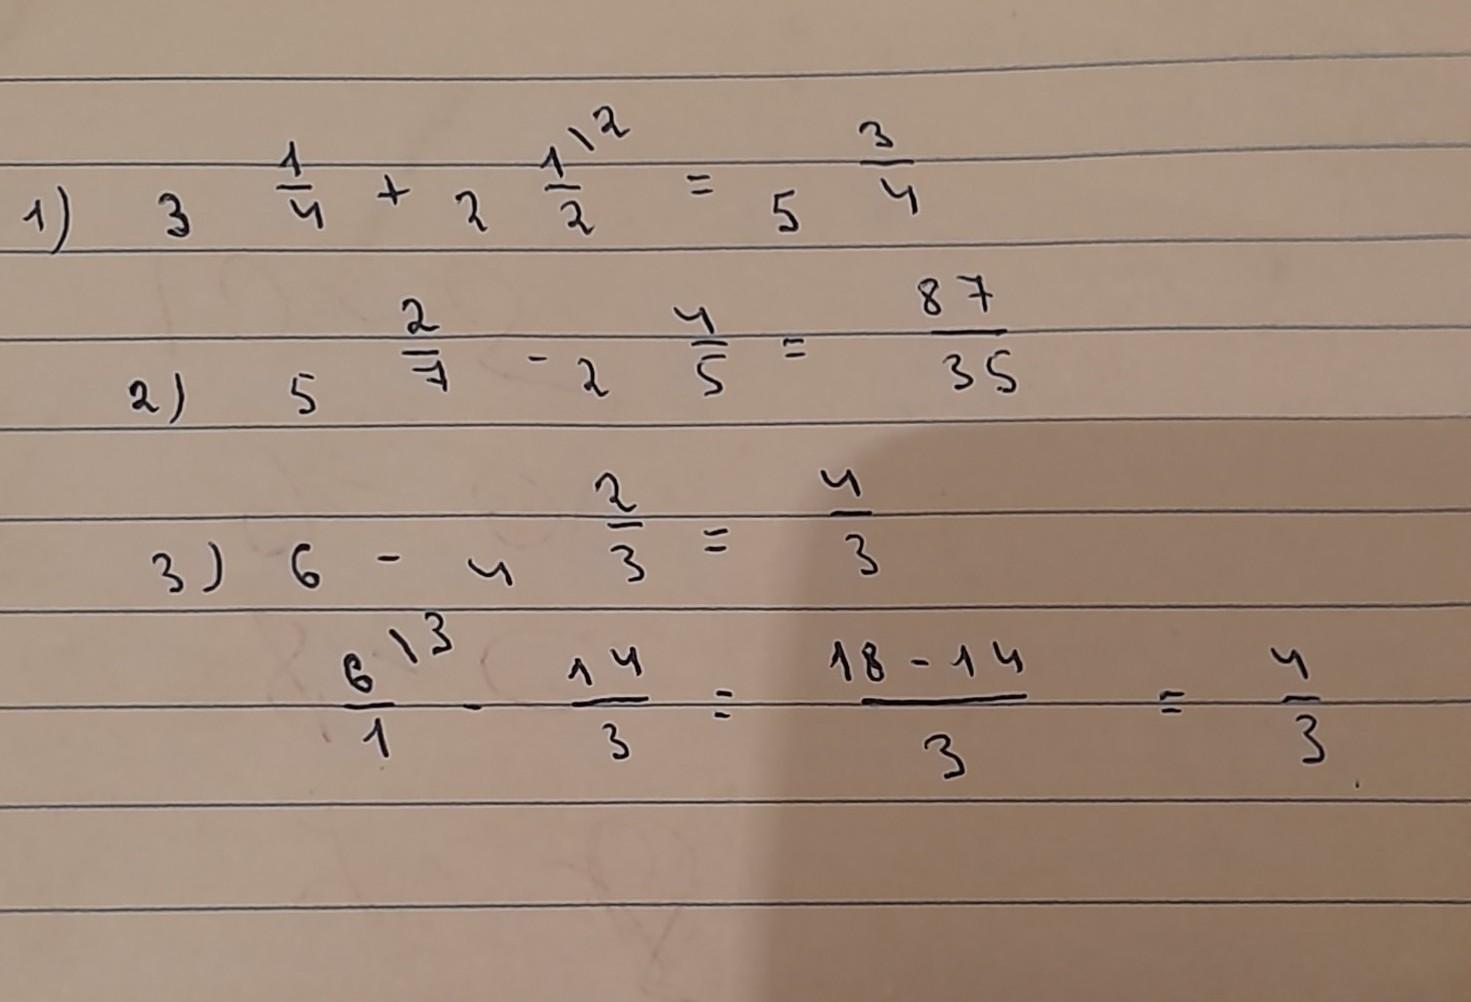 1) 3 1/4 + 2 1\2/2 = 5 3/4
2) 5 2/7 - 2 4/5 = 87/35
3) 6 - 4 2/3 = 4/3
6\3/1 - 14/3 = 18-14/3 = 4/3